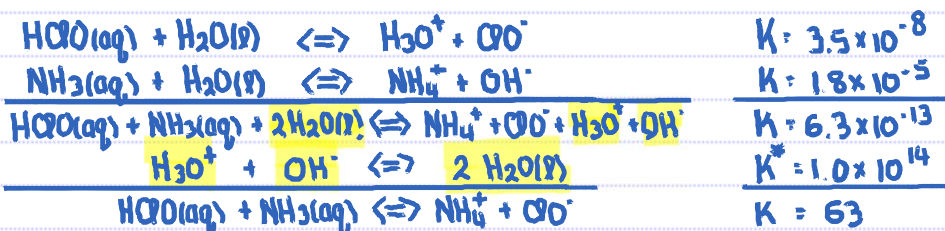 HClO(aq) + H₂O(l) <=> H₃O⁺ + ClO⁻ K = 3.5 x 10⁻⁸
NH₃(aq) + H₂O(l) <=> NH₄⁺ + OH⁻ K = 1.8 x 10⁻⁵
HClO(aq) + NH₃(aq) + 2H₂O(l) <=> NH₄⁺ + ClO⁻ + H₃O⁺ + OH⁻ K = 6.3 x 10⁻¹³
H₃O⁺ + OH⁻ <=> 2 H₂O(l) K* = 1.0 x 10¹⁴
HClO(aq) + NH₃(aq) <=> NH₄⁺ + ClO⁻ K = 63